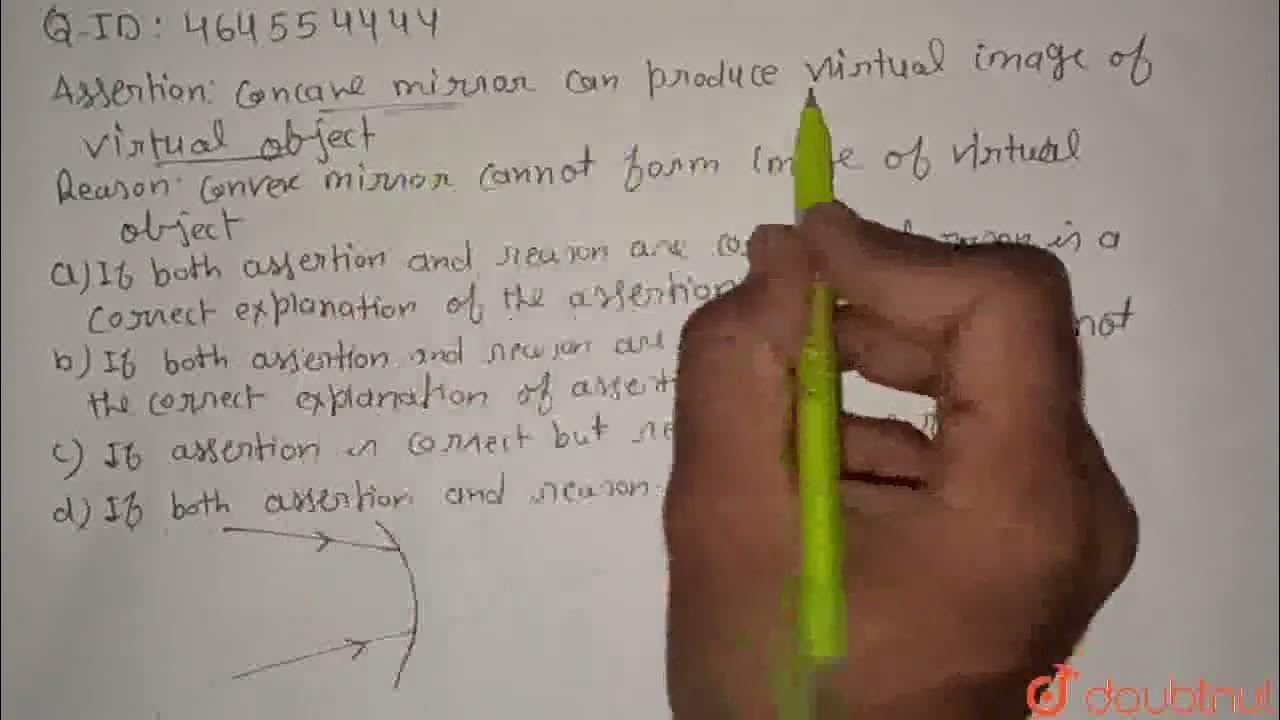 Q-ID: 464555 4444
Assertion: Concave mirror can produce virtual image of
virtual object
Reason: Convex mirror cannot form of virtual
object
a) If both assertion and reason are reason is a
correct explanation of the assertion
b) If both assertion and reason are not
the correct explanation of
c) If assertion is correct but
d) If both assertion and reason
doubtnut